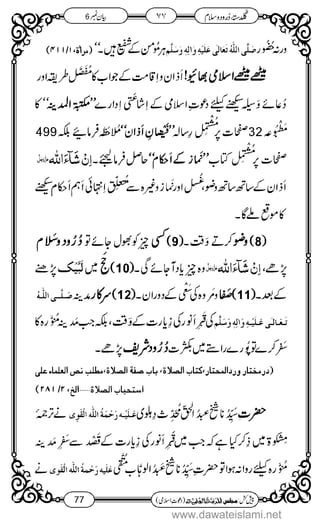 گلدستہ درود وسلام ۷۷ بیان نمبر 6
ورنہ حُضُور صَلَّی اللہُ تَعَالٰی عَلَیْہِ وَاٰلِہٖ وَسَلَّم ہر مومن کے شفیع ہیں۔‘‘ (مراٰۃ، ۱/۴۱۱)
میٹھے میٹھے اسلامی بھائیو! اذان و اقامت کے جواب کا مُفَصَّل طریقہ اور
دعائے وسیلہ سیکھنے کیلئے دعوتِ اسلامی کے اشاعتی ادارے ’’مکتبۃ المدینہ‘‘ کا
مطبوعہ 32 صفحات پر مشتمل رسالہ ’’فیضانِ اذان‘‘ ملاحظہ فرمائیے بلکہ 499
صفحات پر مشتمل کتاب ’’نماز کے احکام‘‘ حاصل فرمالیجئے۔ اِنْ شَآءَاللہ عزوجل
اذان کے ساتھ ساتھ وضو، غسل اور نماز وغیرہ سے متعلق انتہائی اہم احکام سیکھنے
کا موقع ملے گا۔
(8) وضو کرتے وقت۔ (9) کسی چیز کو بھول جائے تو دُرُود وسلام
پڑھے، اِنْ شَآءَاللہ عزوجل وہ چیز یاد آجائے گی۔ (10) حج میں لَبَّیْک پڑھنے
کے بعد۔ (11) صفا و مروہ کی سعی کے دوران۔ (12) سرکارِ مدینہ صَلَّی اللہُ
تَعَالٰی عَلَیْہِ وَاٰلِہٖ وَسَلَّم کی قبرِ انور کی زیارت کے وقت، بلکہ جب مدینہ منورہ کا
سفر کرے تو پورے راستے میں بکثرت دُرُود شریف پڑھے۔
(درمختار وردالمحتار، کتاب الصلاۃ، باب صفۃ الصلاۃ، مطلب نص العلماء علی
استحباب الصلاۃ.....الخ، ۲/۲۸۱)
حضرت سَیِّدُنا شیخ عبدُالحق مُحدِّث دہلوی عَلَیْہِ رَحْمَۃُ اللہِ الْقَوِی نے ترجمۂ
مشکوٰۃ میں ذکر کیا ہے کہ جب میں قبرِ انور کی زیارت کے قصد سے سفرِ مدینہ
منورہ کیلئے روانہ ہوا تو حضرت سَیِّدُنا شیخ عبدالوہاب متقی عَلَیْہِ رَحْمَۃُ اللہِ الْقَوِی نے
77
www.dawateislami.net